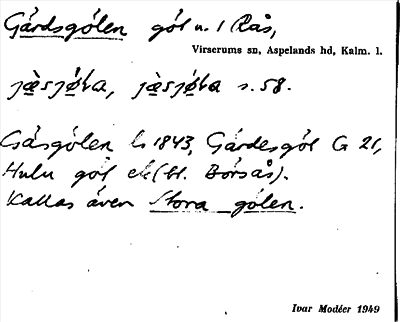 Gårdsgölen göl n. l Rås,
Virserums sn, Aspelands hd, Kalm. l.
jæ̀sjø̀ʟa, jæ̀sjø̀ʟa s. 58.
Gåsgölen Ls 1843, Gårdesgöl G 21,
Hulu göl ek (bl. Börsås).
Kallas även Stora gölen.
Ivar Modéer 1949